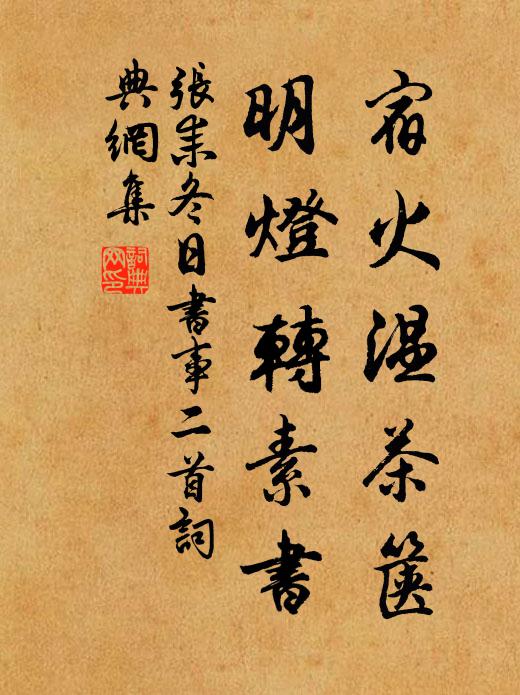 宿火温茶篋
明燈轉素書
張耒冬日書事二首詞
典網集
詞典
网印